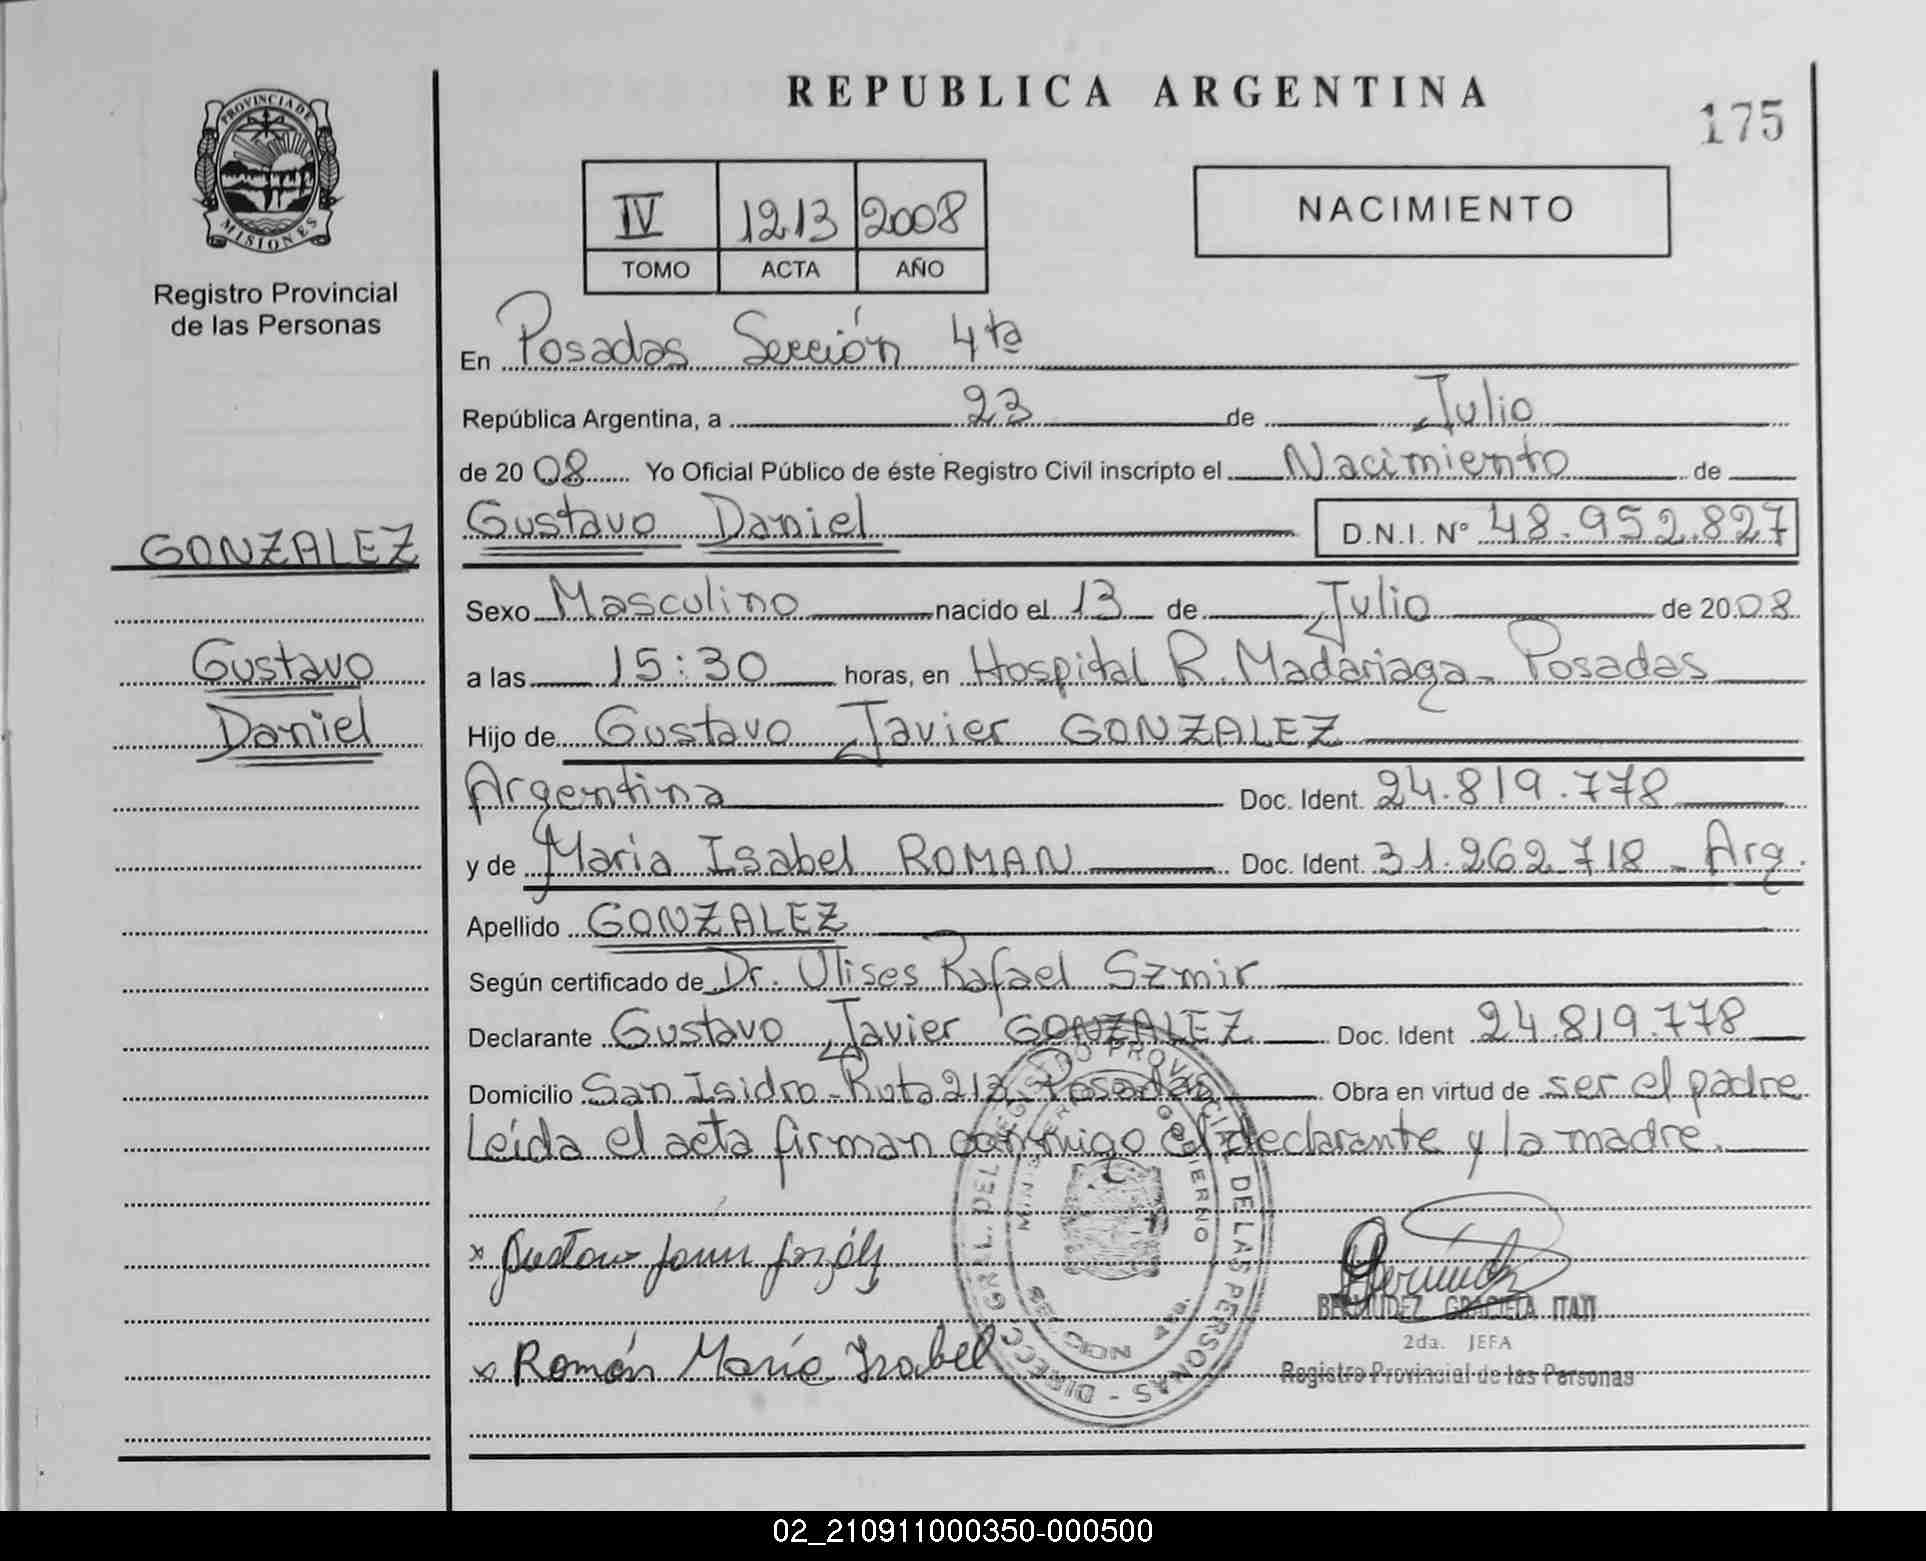 REPUBLICA ARGENTINA
175
PROVINCIA DE MISIONES
Registro Provincial
de las Personas
IV 1213 2008
TOMO ACTA AÑO
NACIMIENTO
En Posadas Sección 4ta
República Argentina, a 23 de Julio
de 2008 Yo Oficial Público de éste Registro Civil inscripto el Nacimiento de
GONZALEZ
Gustavo
Daniel
Gustavo Daniel D.N.I. Nº 48.952.827
Sexo Masculino nacido el 13 de Julio de 2008
a las 15:30 horas, en Hospital R. Madariaga - Posadas
Hijo de Gustavo Javier GONZALEZ
Argentina Doc. Ident. 24.819.778
y de Maria Isabel ROMAN Doc. Ident. 31.262.718 - Arg.
Apellido GONZALEZ
Según certificado de Dr. Ulises Rafael Szmir
Declarante Gustavo Javier GONZALEZ Doc. Ident 24.819.778
Domicilio San Isidro - Ruta 213 - Posadas Obra en virtud de ser el padre
Leída el acta firman conmigo el declarante y la madre.
x Gustavo
x Román María Isabel
DIRECC. GRAL. DEL REGISTRO PROVINCIAL DE LAS PERSONAS
BERMUDEZ GRACIELA ITATI
2da. JEFA
Registro Provincial de las Personas
02_210911000350-000500